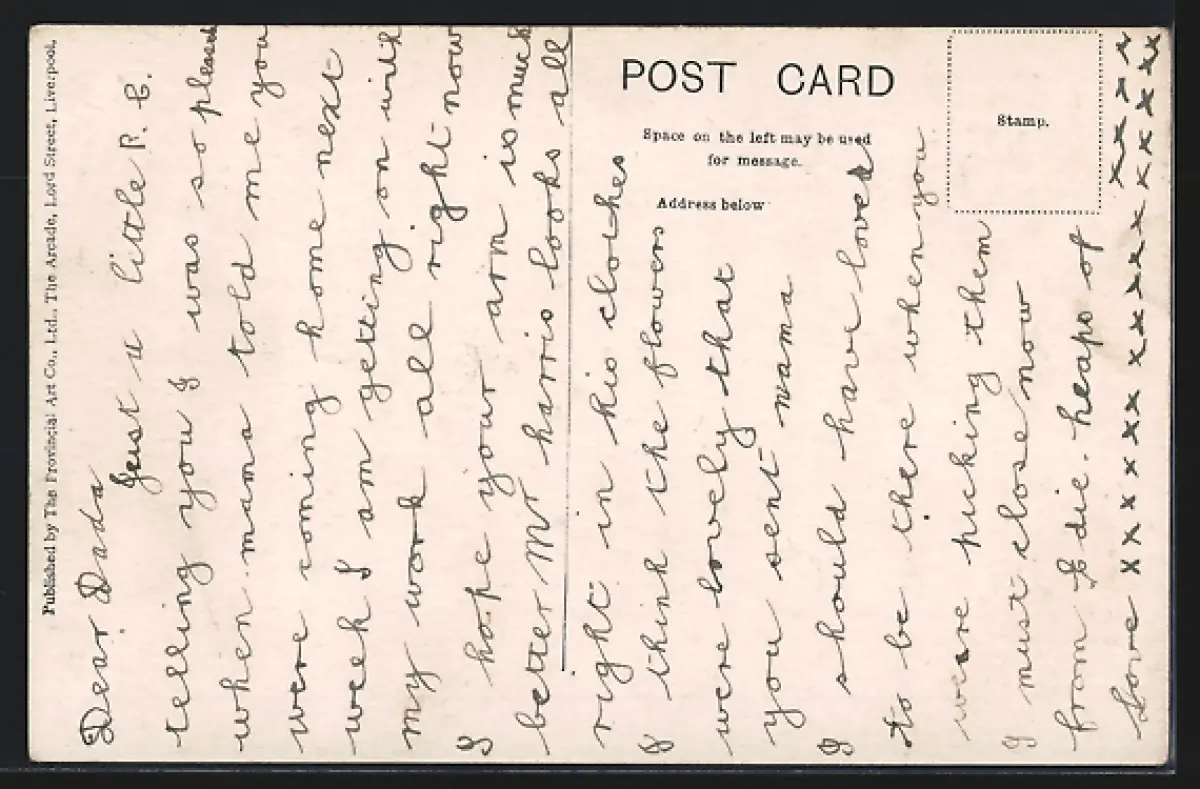 Published by The Provincial Art Co., Ltd., The Arcade, Lord Street, Liverpool.
POST CARD
Stamp.
Space on the left may be used
for message.
Address below
Dear Dada
Just a little P. C.
telling you I was so pleased
when mama told me you
were coming home next
week I am getting on with
my work all right now
I hope your arm is much
better Mr harris looks all
right in his clothes
I think the flowers
were lovely that
you sent mama
I should have loved
to be there when you
were picking them
I must close now
from Edie. heaps of
love x x x x x x x x x x x x x x
x x x x